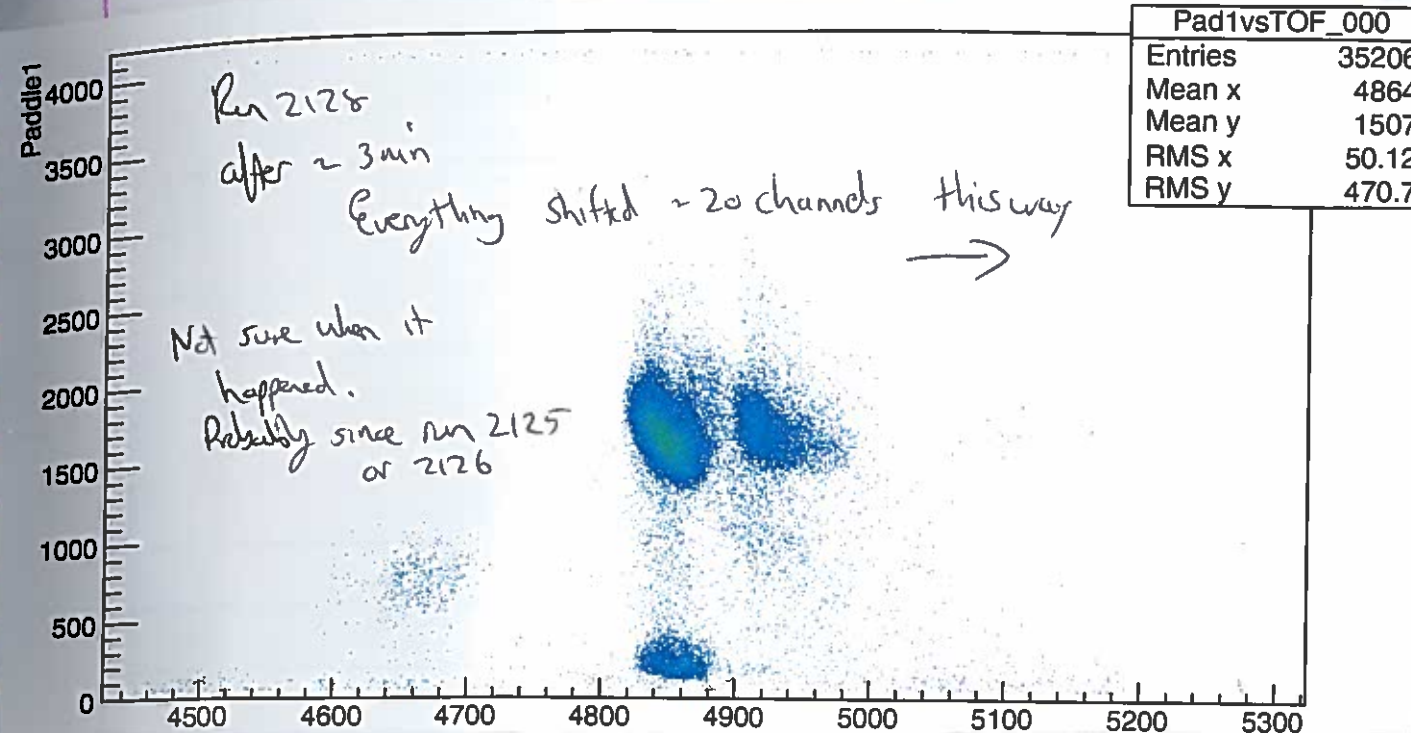 Pad1vsTOF_000
Entries 35206
Mean x 4864
Mean y 1507
RMS x 50.12
RMS y 470.7
Paddle1
4000
3500
3000
2500
2000
1500
1000
500
0
Run 2128
after ~ 3 min
Everything shifted ~ 20 channels this way
Not sure when it
happened.
Probably since run 2125
or 2126
4500 4600 4700 4800 4900 5000 5100 5200 5300